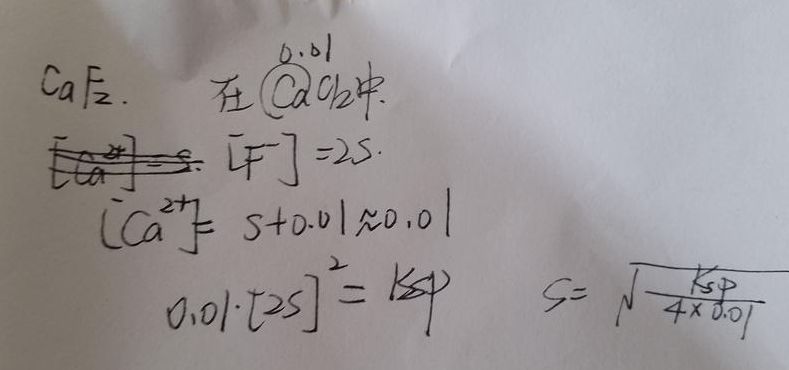 0.01
CaF₂. 在CaCl₂中.
[Ca²⁺]=S. [F⁻]=2S.
[Ca²⁺]= S+0.01≈0.01
0.01·[2S]²=Ksp S=√(Ksp/(4×0.01))